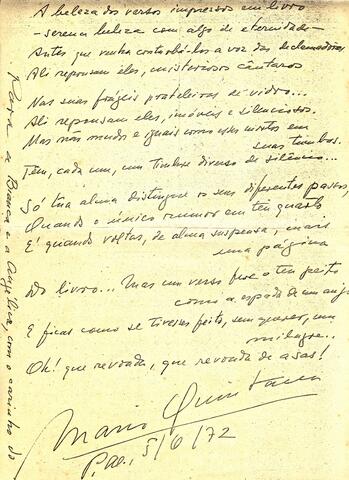 A beleza dos versos impressos em livro
– serena beleza com algo de eternidade –
Antes que venha conturbá-los a voz das declamadoras
Ali repousam eles, misteriosos cântaros
Nas suas frágeis prateleiras de vidro...
Ali repousam eles, imóveis e silenciosos.
Mas não mudos e iguais como esses mortos em
suas tumbas.
Têm, cada um, um timbre diverso de silêncio...
Só tua alma distingue os seus diferentes passos,
Quando o único rumor em teu quarto
É quando voltas, de alma suspensa, mais
uma página
Do livro... Mas um verso fere o teu peito
como a espada de um anjo
E ficas como se tivesses feito, sem querer, um
milagre...
Oh! que revoada, que revoada de asas!
Mario Quintana
P.Ae., 5/6/72
Para a Bianca e a Angélica, com o carinho do